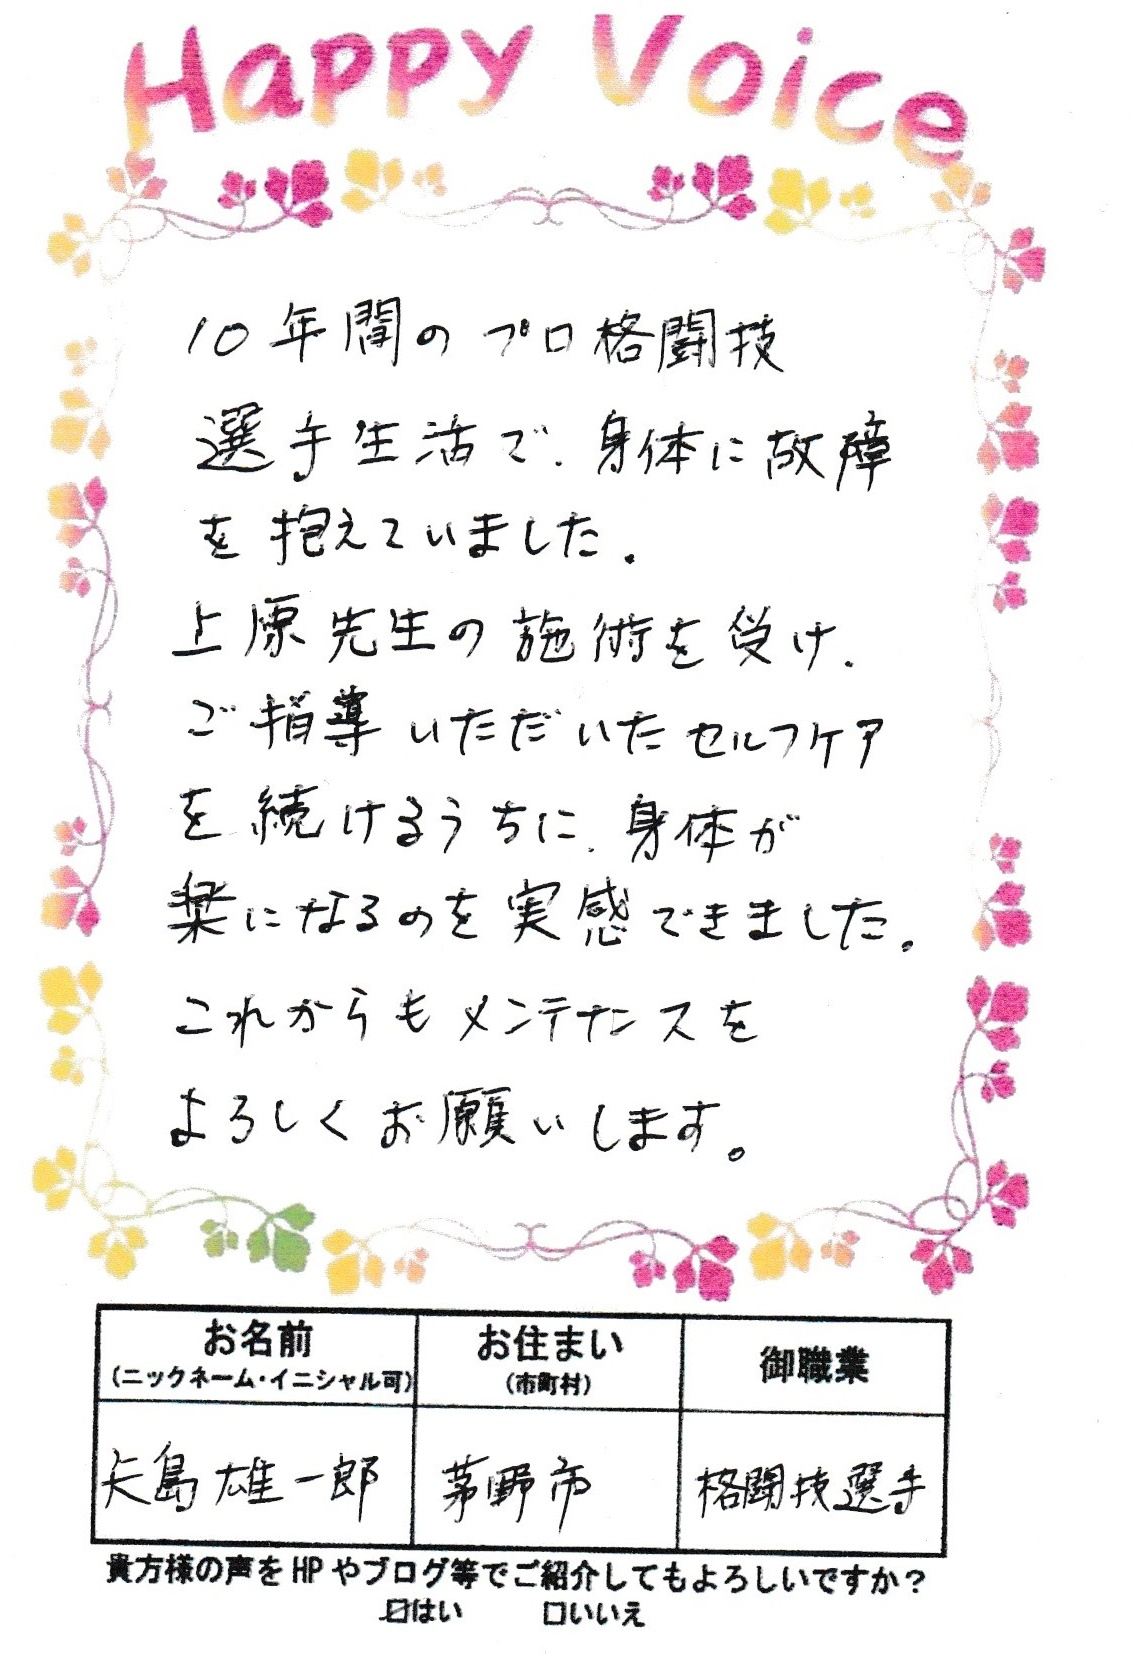 Happy Voice
10年間のプロ格闘技
選手生活で、身体に故障
を抱えていました。
上原先生の施術を受け、
ご指導いただいたセルフケア
を続けるうちに、身体が
楽になるのを実感できました。
これからもメンテナンスを
よろしくお願いします。
お名前 お住まい 御職業
(ニックネーム・イニシャル可) (市町村)
矢島雄一郎 茅野市 格闘技選手
貴方様の声をHPやブログ等でご紹介してもよろしいですか？
☑はい □いいえ